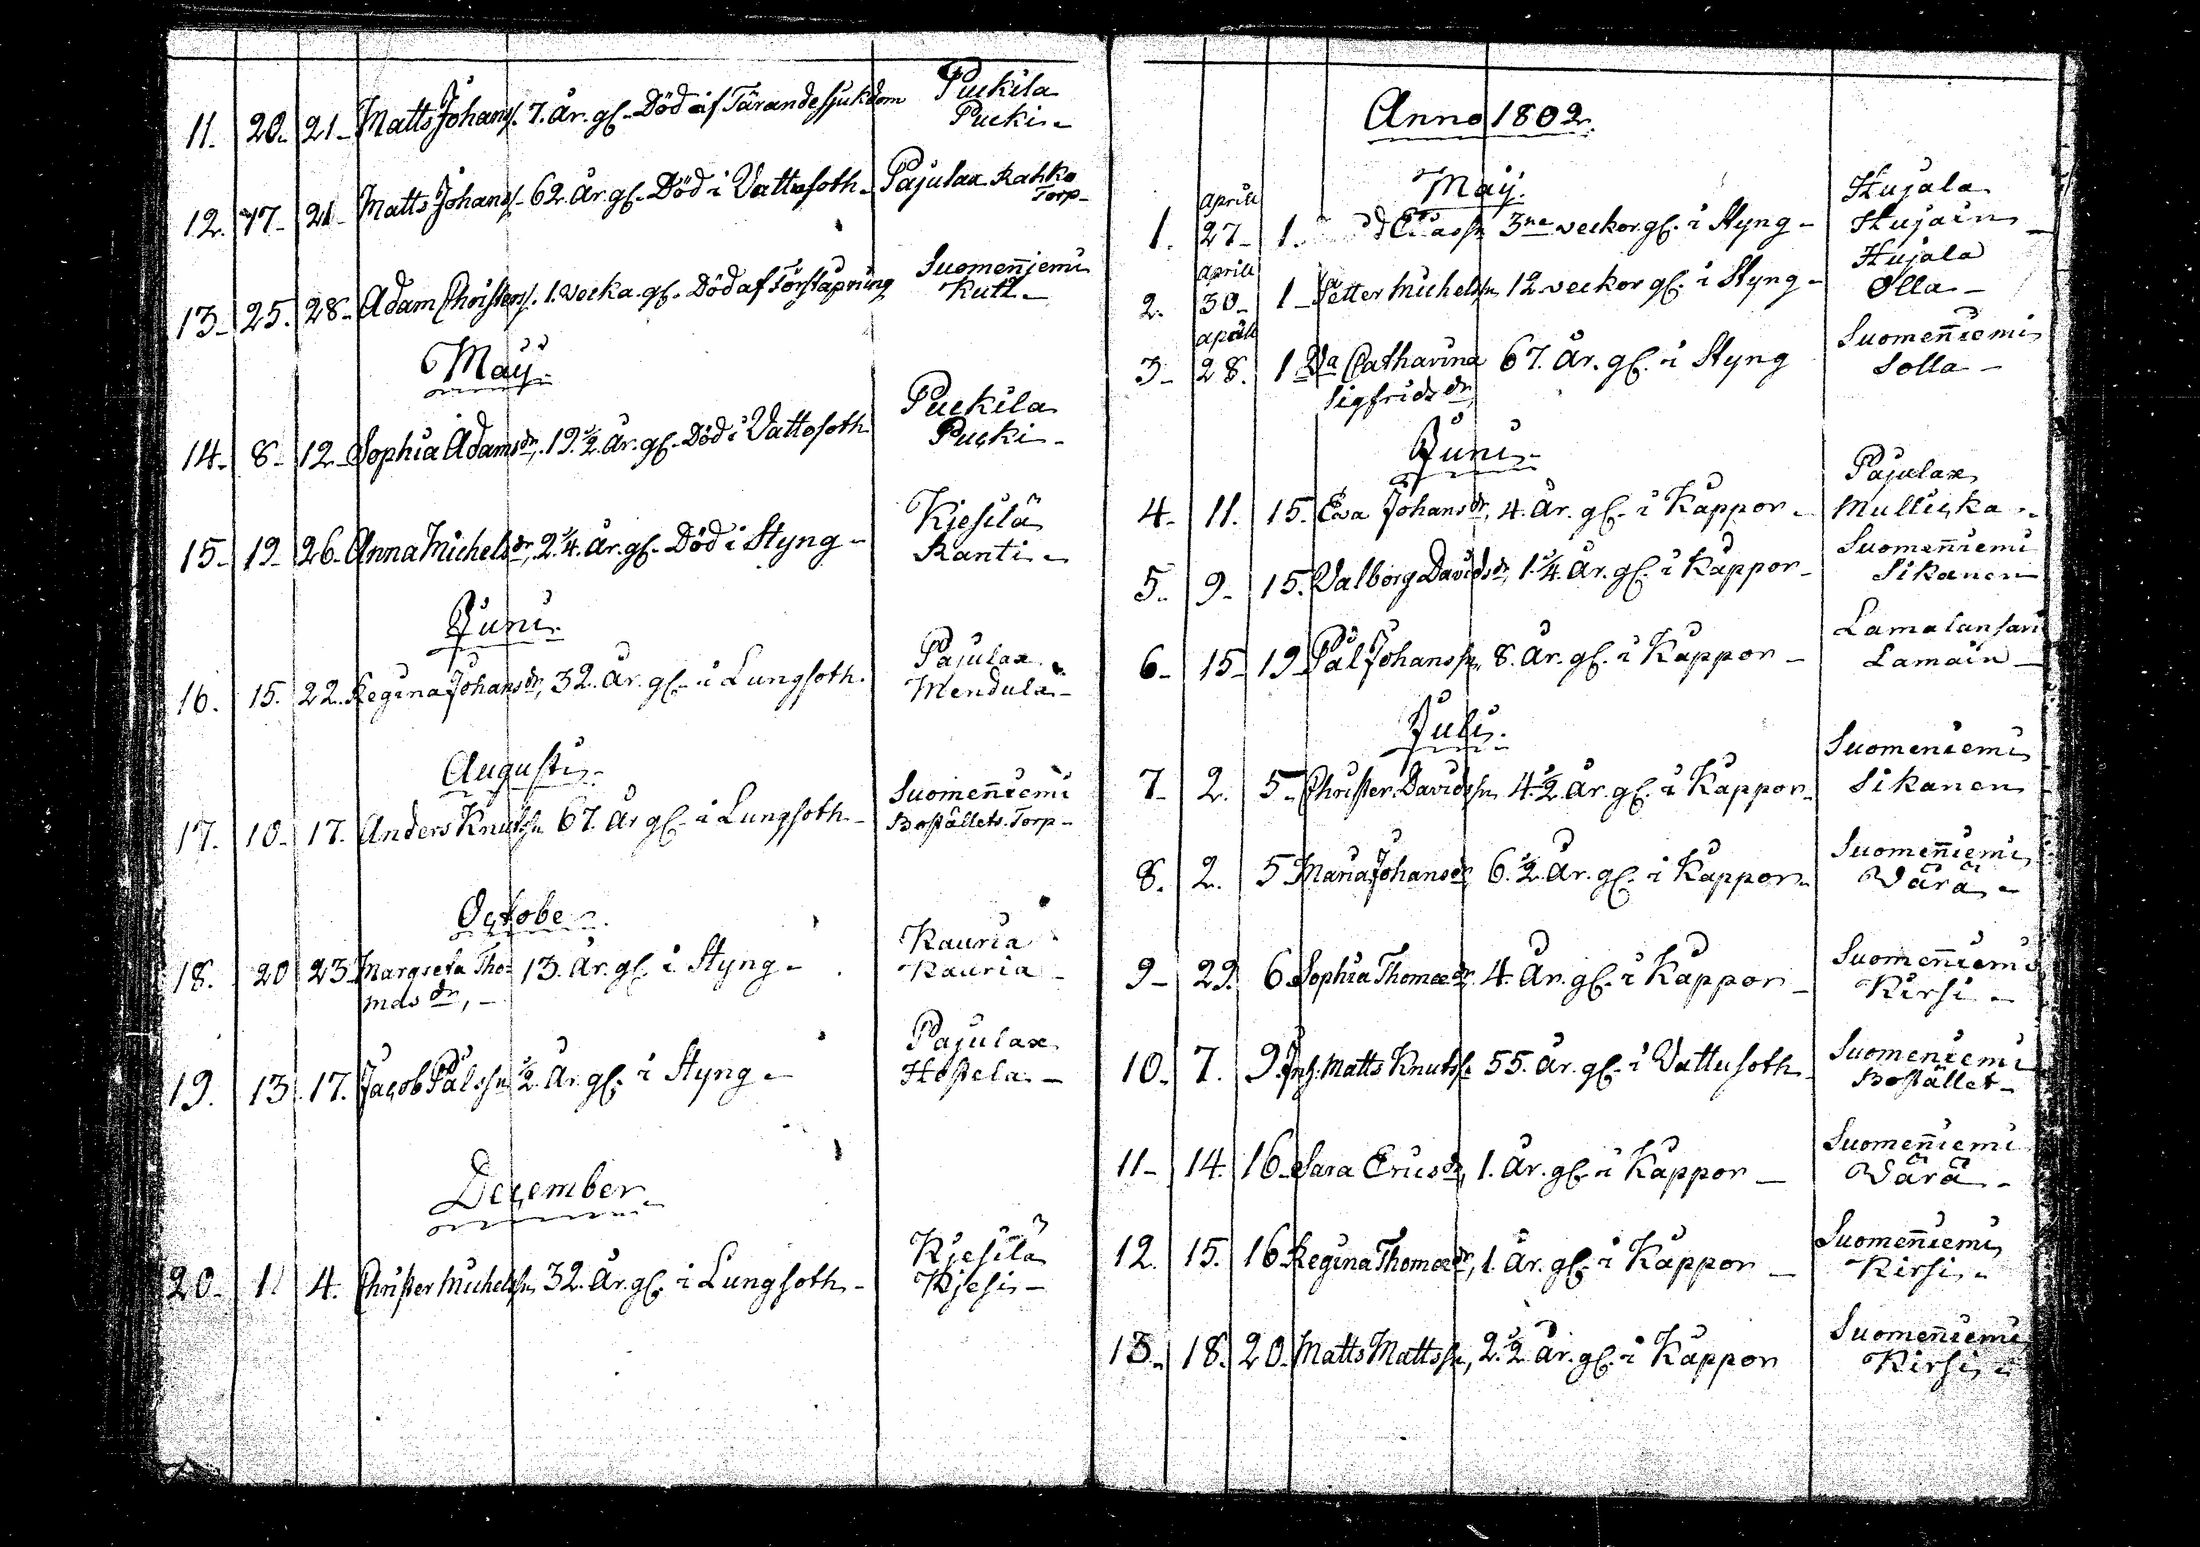 11. 20. 21. Matts Johans. 7. År. gl. Död af Tärandesjukdom Puckila
Pucki
12. 17. 21. Matts Johans. 62. År. gl. Död i Vattusoth Pajulax Rahko
Torp
13. 25. 28. Adam Christers. 1. Vecka. gl. Död af Förstapning Suomenniemi
Kutt
Maij
14. 8. 12. Sophia Adamsdr, 19. 1/2. År. gl. Död i Vattusoth Puckila
Pucki
15. 19. 26. Anna Michelsdr, 2. 1/4. År. gl. Död i Styng Kjesilä
Ranti
Junii
16. 15. 22. Regina Johansdr, 32. År. gl. i Lungsoth. Pajulax
Mendula
Augusti
17. 10. 17. Anders Knutssn 67. År gl. i Lungsoth Suomenniemi
Boställets Torp
October
18. 20 23 Margreta Tho= 13. År. gl. i Styng Kauria
masdr, Kauria
19. 13. 17. Jacob Pålssn 1/2 År. gl. i Styng Pajulax
Hostela
December
20. 1. 4. Christer Michelssn 32. År. gl. i Lungsoth Kjesilä
Kjesi
Anno 1802.
Maij
1. Aprill 27. 1. 3ne veckor gl. i Styng Hujala
Hujain
2. Aprill 30. 1 Petter Michelssn 12 veckor gl. i Styng Hujala
Olla
3. Aprill 28. 1 Catharina 67. År. gl. i Styng Suomenniemi
Sigfridsdr Solla
Junii
4. 11. 15. Eva Johansdr, 4. År. gl. i Kåppor Pajulax
Mullicka
5. 9. 15. Valborg Davidsdr, 1. 1/4. År. gl. i Kåppor Suomenniemi
Sikanen
6. 15 19 Pål Johanssn, 8. År. gl. i Kåppor Lamalansari
Lamain
Julii
7. 2. 5. Christer Davidssn 4 1/2. År. gl. i Kåppor Suomeniemi
Sikanen
8. 2. 5 Maria Johansdr 6. 1/2. År. gl. i Kåppor Suomenniemi
Wärä
9. 29. 6. Sophia Thomædr. 4. År. gl. i Kåppor Suomenniemi
Kirsi
10. 7. 9. Matts Knutss. 55. År. gl. i Vattusoth Suomeniemi
Bostället
11. 14. 16. Sara Ericsdr, 1. År. gl. i Kåppor Suomenniemi
Wärä
12. 15. 16 Regina Thomædr, 1. År. gl. i Kåppor Suomenniemi
Kirsi
13. 18. 20. Matts Mattssn, 2. 1/2 År. gl. i Kåppor Suomenniemi
Kirsi